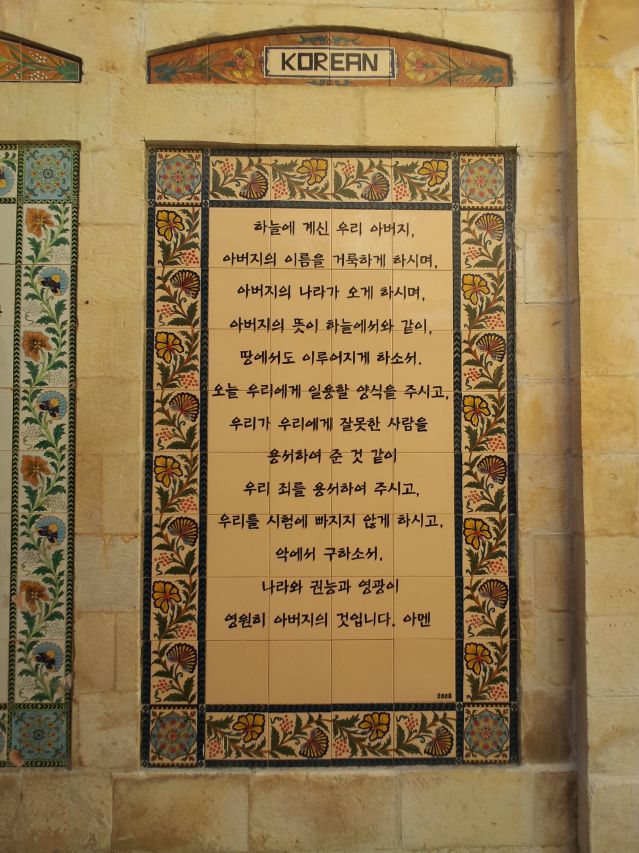 KOREAN
하늘에 계신 우리 아버지,
아버지의 이름을 거룩하게 하시며,
아버지의 나라가 오게 하시며,
아버지의 뜻이 하늘에서와 같이,
땅에서도 이루어지게 하소서.
오늘 우리에게 일용할 양식을 주시고,
우리가 우리에게 잘못한 사람을
용서하여 준 것 같이
우리 죄를 용서하여 주시고,
우리를 시험에 빠지지 않게 하시고,
악에서 구하소서.
나라와 권능과 영광이
영원히 아버지의 것입니다. 아멘
2005